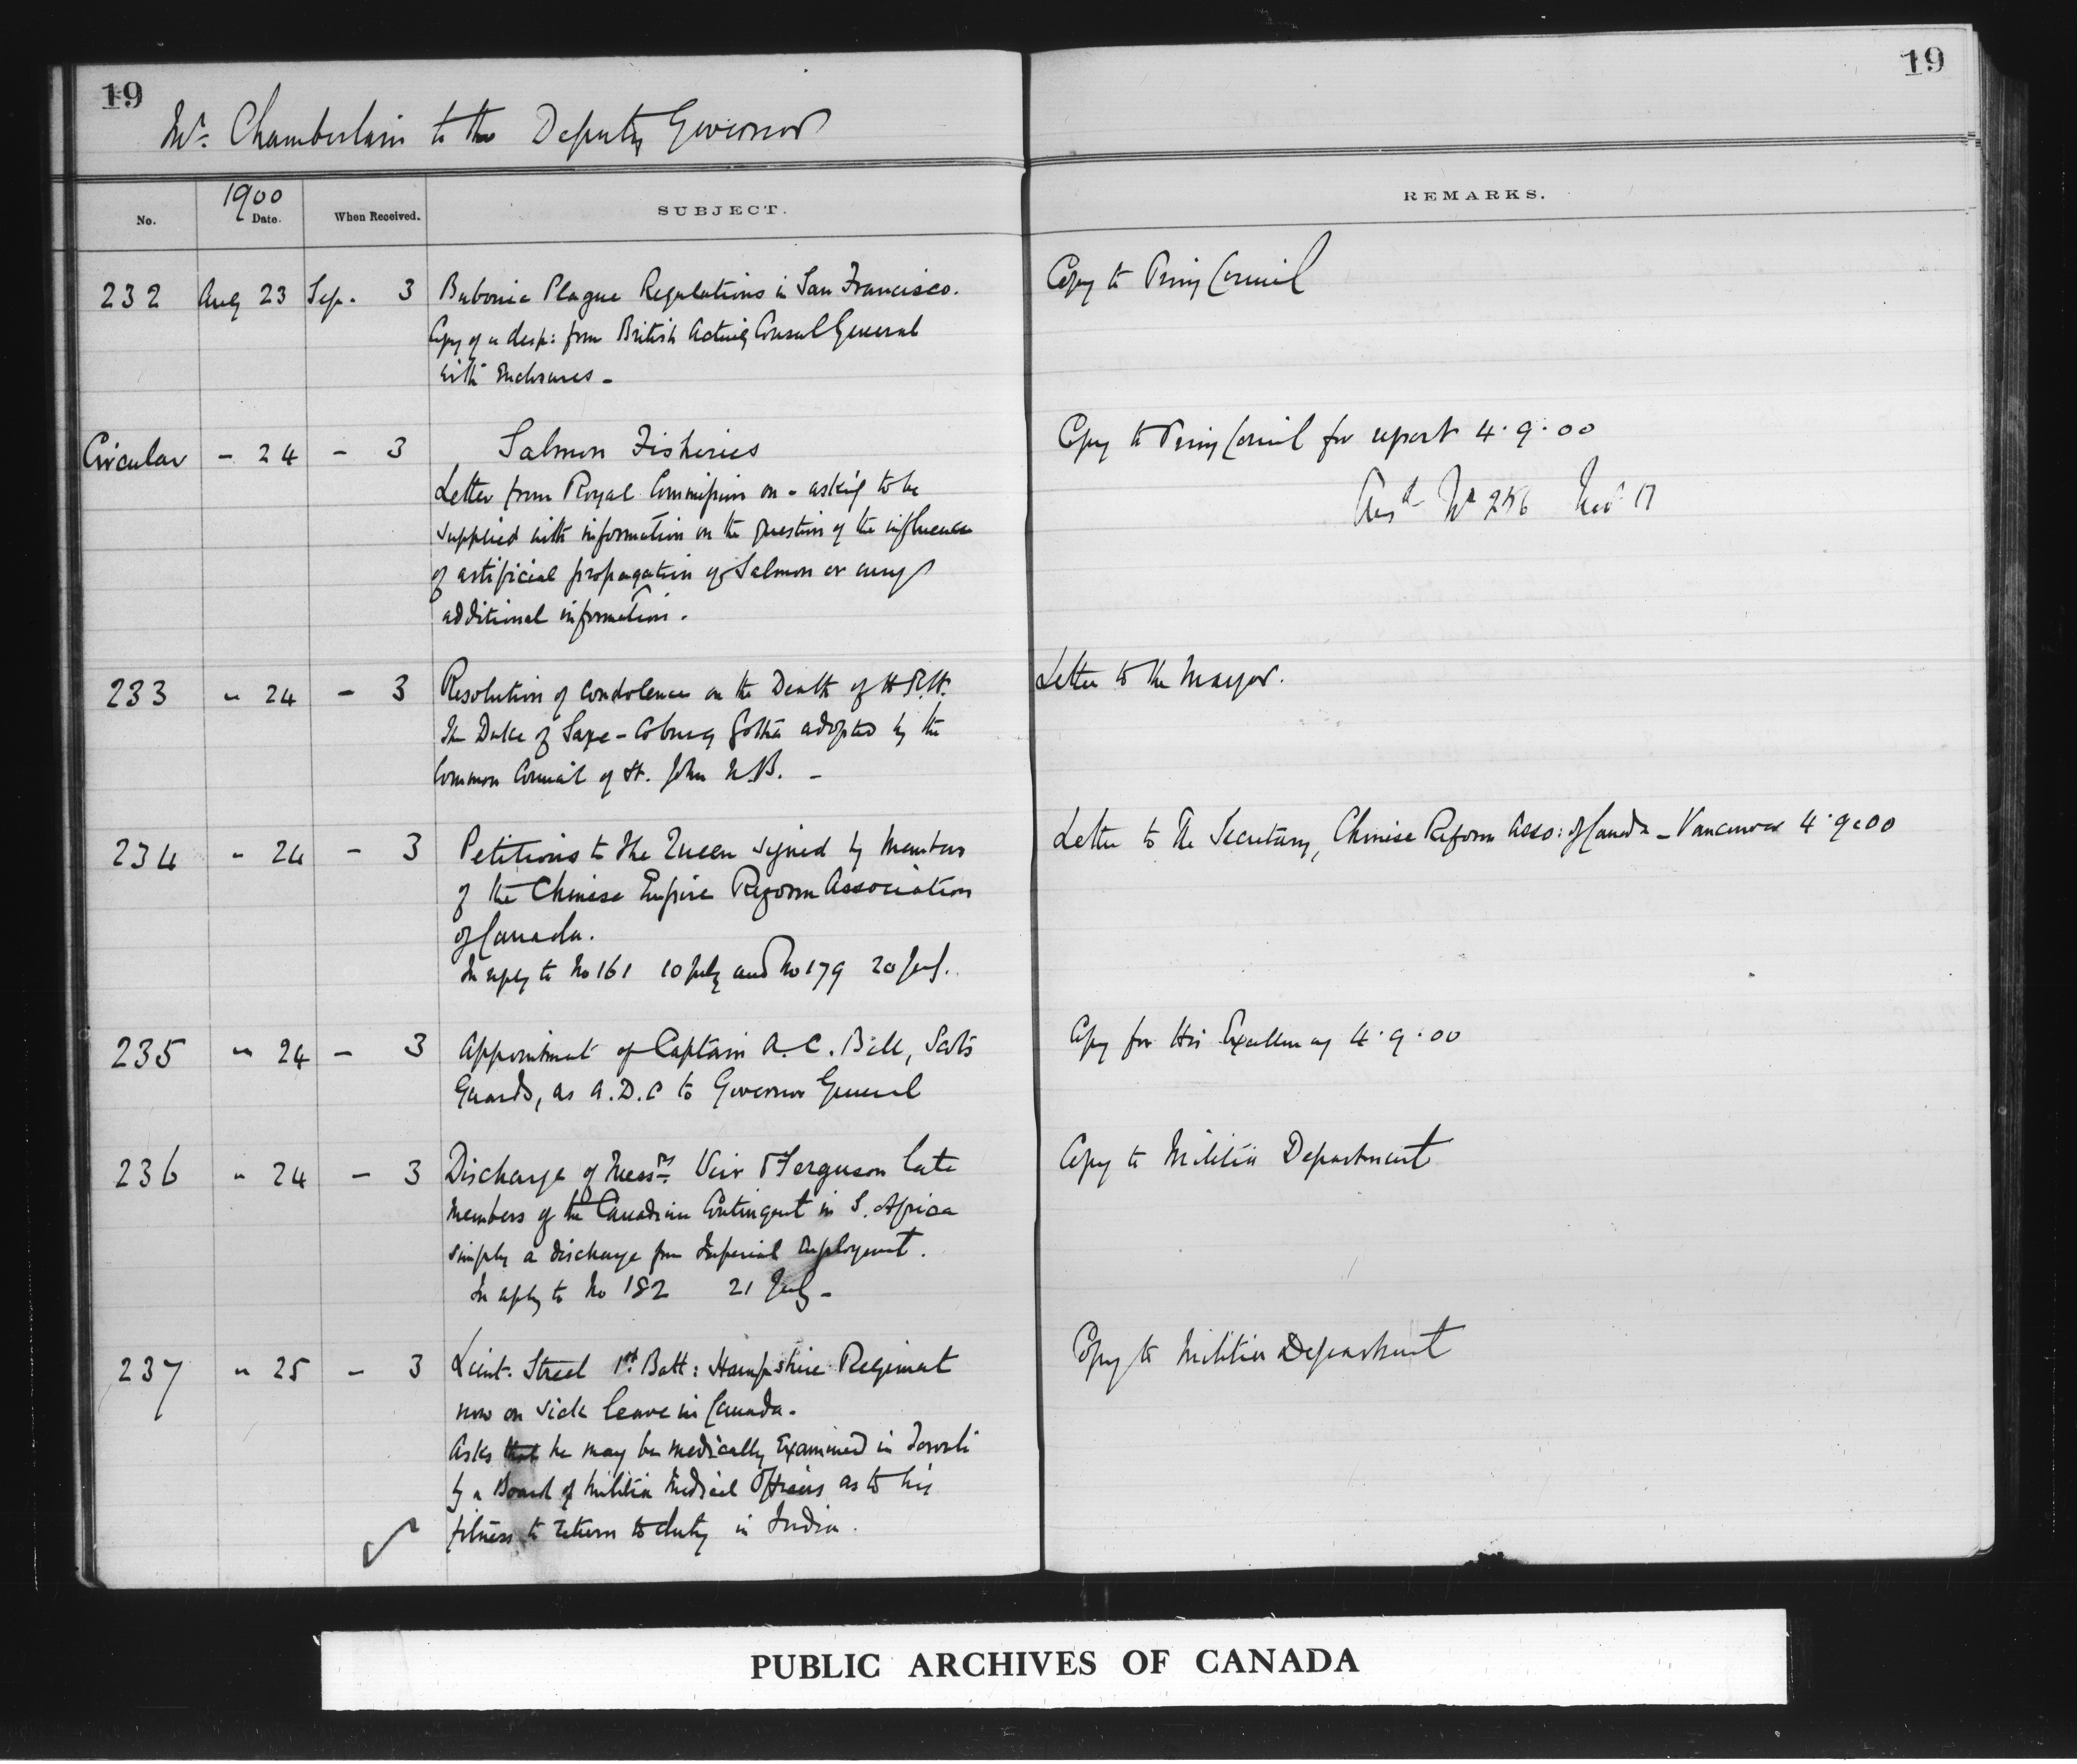 19
19
Mr. Chamberlain to the Deputy Governor
1900
No.
Date.
When Received.
SUBJECT.
REMARKS.
232 Aug 23 Sep. 3 Bubonic Plague Regulations in San Francisco. Copy to Privy Council
Copy of a desp: from British Acting Consul General
with Enclosures -
Circular - 24 - 3 Salmon Fisheries Copy to Privy Council for report 4.9.00
Letter from Royal Commission on - asking to be Ansd No 256 Nov 17
supplied with information on the question of the influence
of artificial propagation of Salmon or any
additional information.
233 " 24 - 3 Resolution of condolence on the Death of H.R.H. Letter to the Mayor.
the Duke of Saxe-Coburg Gotha adopted by the
Common Council of St. John N.B. -
234 " 24 - 3 Petitions to the Queen signed by Members Letter to the Secretary, Chinese Reform Asso: of Canada - Vancouver 4.9.00
of the Chinese Empire Reform Association
of Canada.
In reply to No 161 10 July and No 179 20 July.
235 " 24 - 3 Appointment of Captain A.C. Bell, Scots Copy for His Excellency 4.9.00
Guards, as A.D.C to Governor General
236 " 24 - 3 Discharge of Messrs Ferguson late Copy to Militia Department
members of the Canadian Contingent in S. Africa
simply a discharge from Imperial Employment.
In reply to No 182 21 July -
237 " 25 - 3 Lieut. Street 1st Batt: Hampshire Regiment Copy to Militia Department
now on sick leave in Canada.
Asks that he may be medically Examined in
by a Board of Militia Medical Officers as to his
fitness to return to duty in India.
PUBLIC ARCHIVES OF CANADA